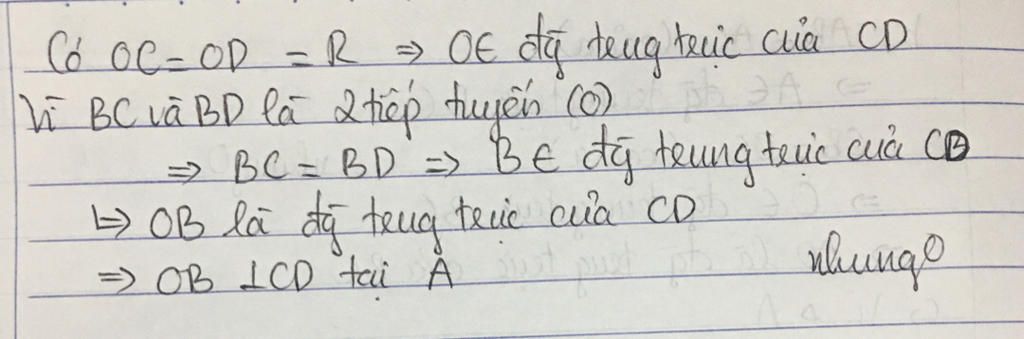 Có OC = OD = R ⇒ O∈ đg̃ teug teực của CD
Vì BC và BD là 2 tiếp tuyến (O)
⇒ BC = BD ⇒ B∈ đg̃ teung teực của CD
↳ OB là đg̃ teug teực của CD
⇒ OB ⊥ CD tại A nhung